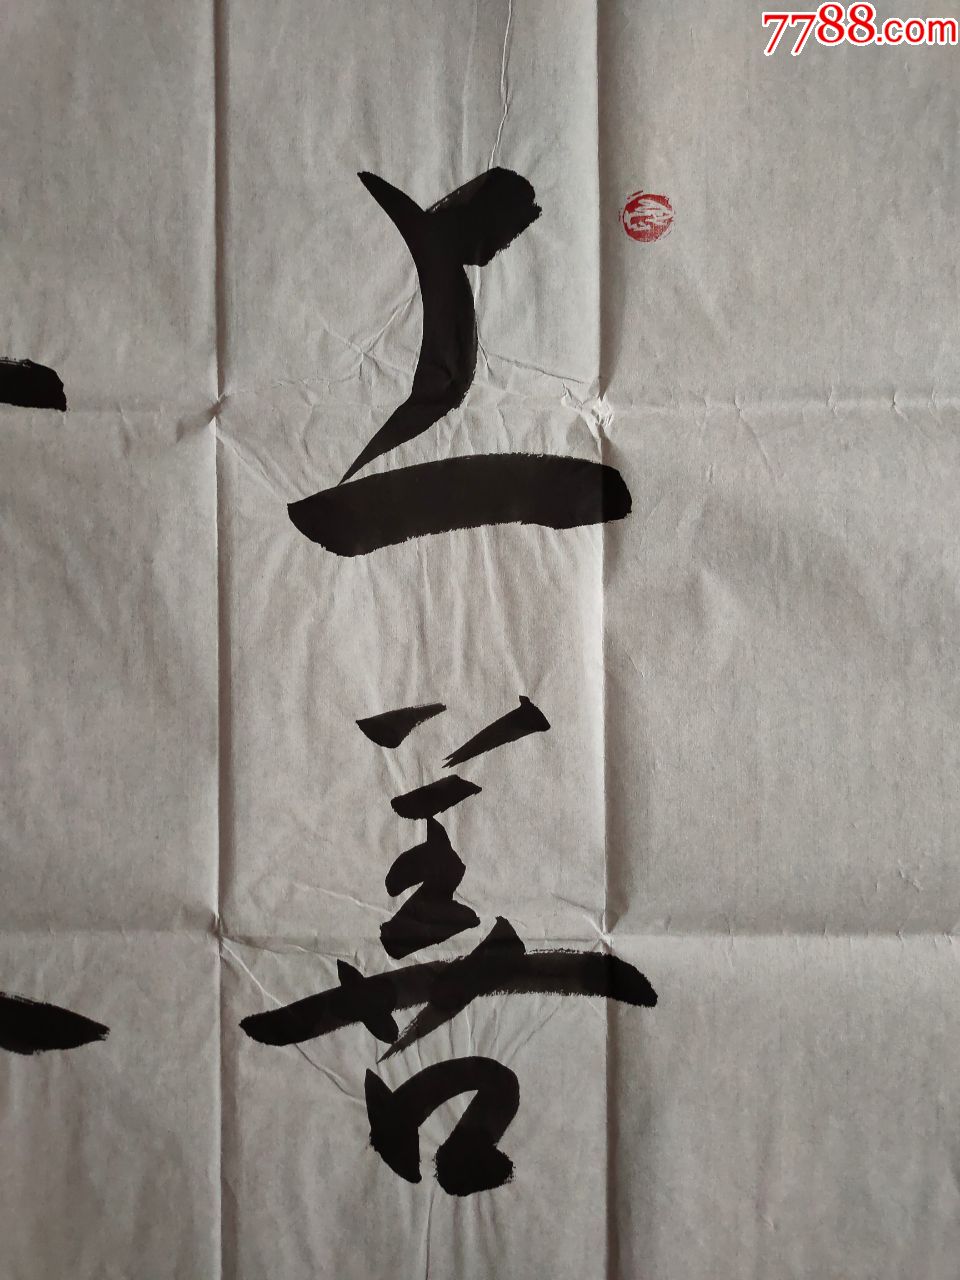 7788.com
上善